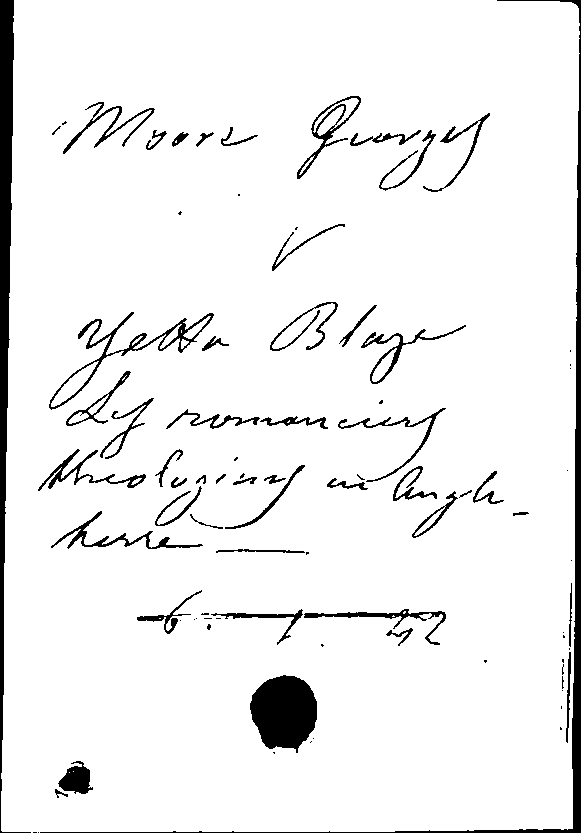 Moore Georges
V
Yetta Blaze
Les romanciers
théologiens en Angle-
terre —
6. 1. 42